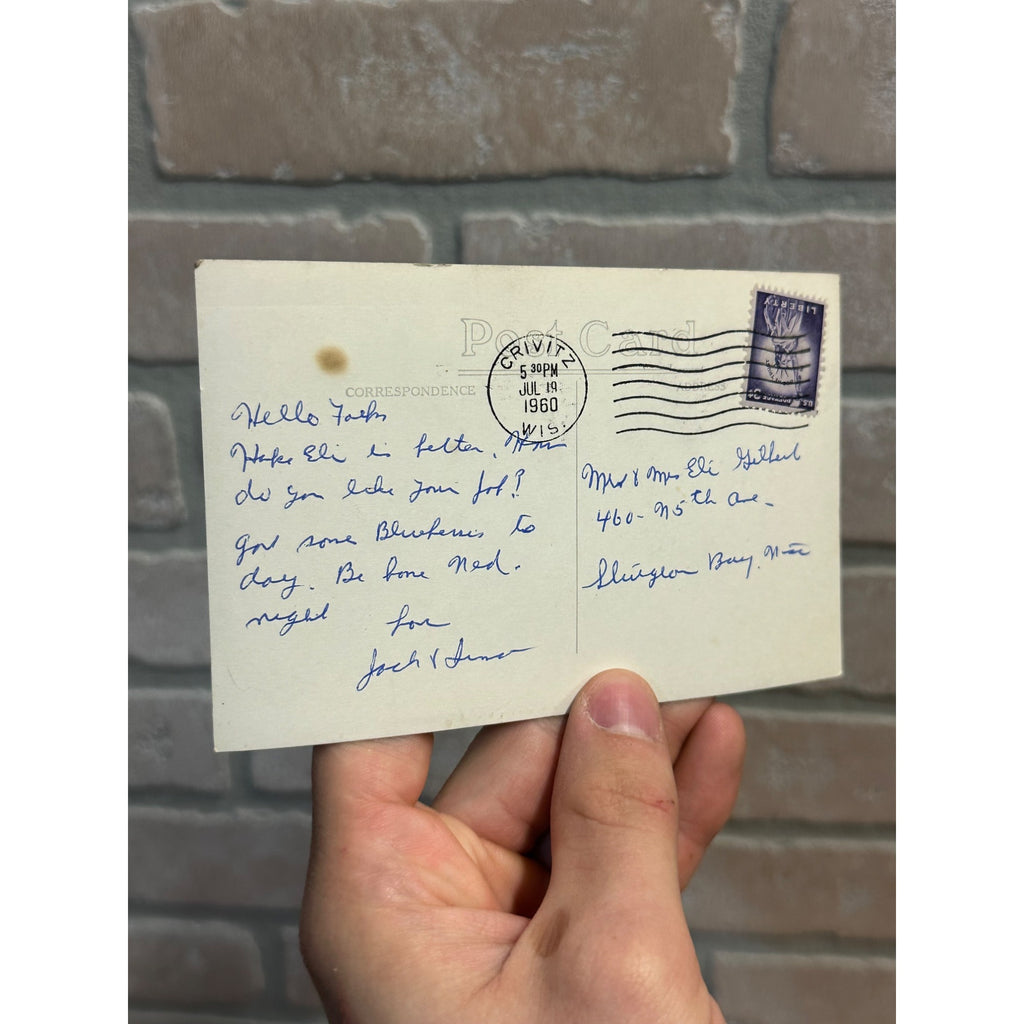 Post Card
CORRESPONDENCE
ADDRESS
CRIVITZ
5 30 PM
JUL 19
1960
WIS.
LIBERTY
U.S. POSTAGE 3¢
Hello Folks
Hope Eli is better. How
do you like your job?
Got some Blueberries to
day. Be home Wed.
night Love
Jack &
Mr & Mrs Eli Gilbert
460- N 5th Ave-
Sturgeon Bay, Wis